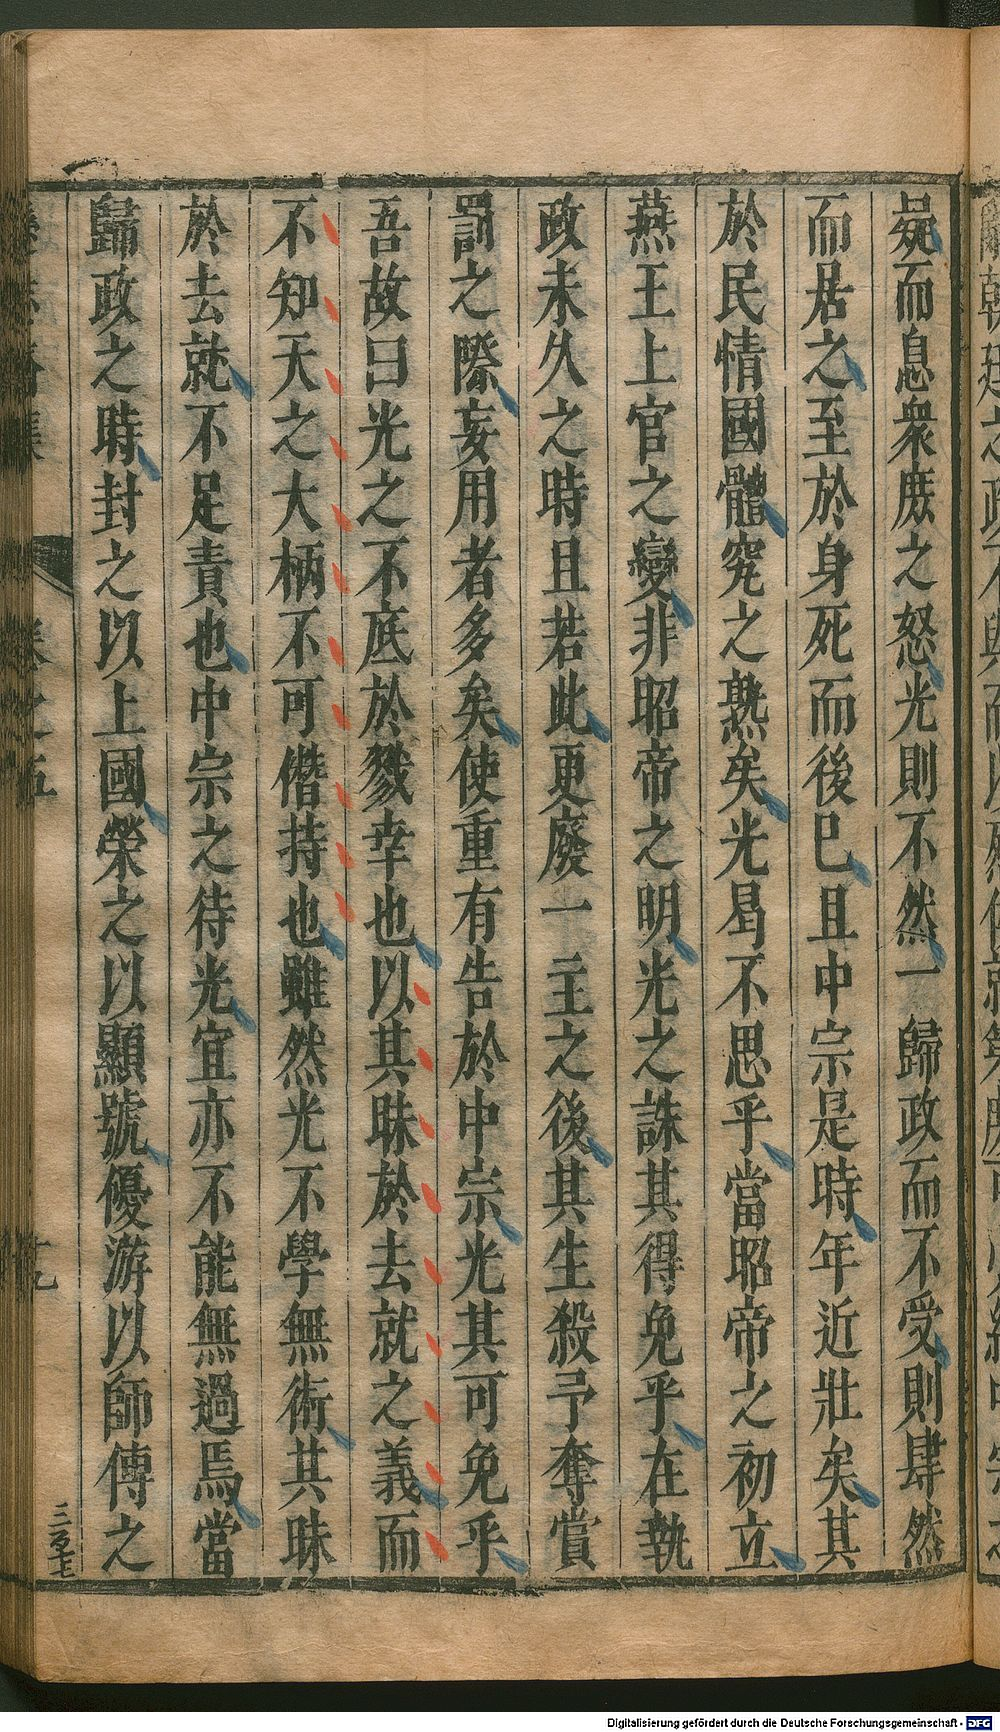 疑而息衆庶之怒光則不然一歸政而不受則肆然
而居之至於身死而後已且中宗是時年近壯矣其
於民情國體究之熟矣光曷不思乎當昭帝之初立
燕王上官之變非昭帝之明光之誅其得免乎在執
政未久之時且若此更廢一主之後其生殺予奪賞
罰之際妄用者多矣使重有告於中宗光其可免乎
吾故曰光之不底於戮幸也以其昧於去就之義而
不知天之大柄不可僭持也雖然光不學無術其昧
於去就不足責也中宗之待光宜亦不能無過焉當
歸政之時封之以上國榮之以顯號優游以師傅之
卷之五
十九
三百七
Digitalisierung gefördert durch die Deutsche Forschungsgemeinschaft - DFG